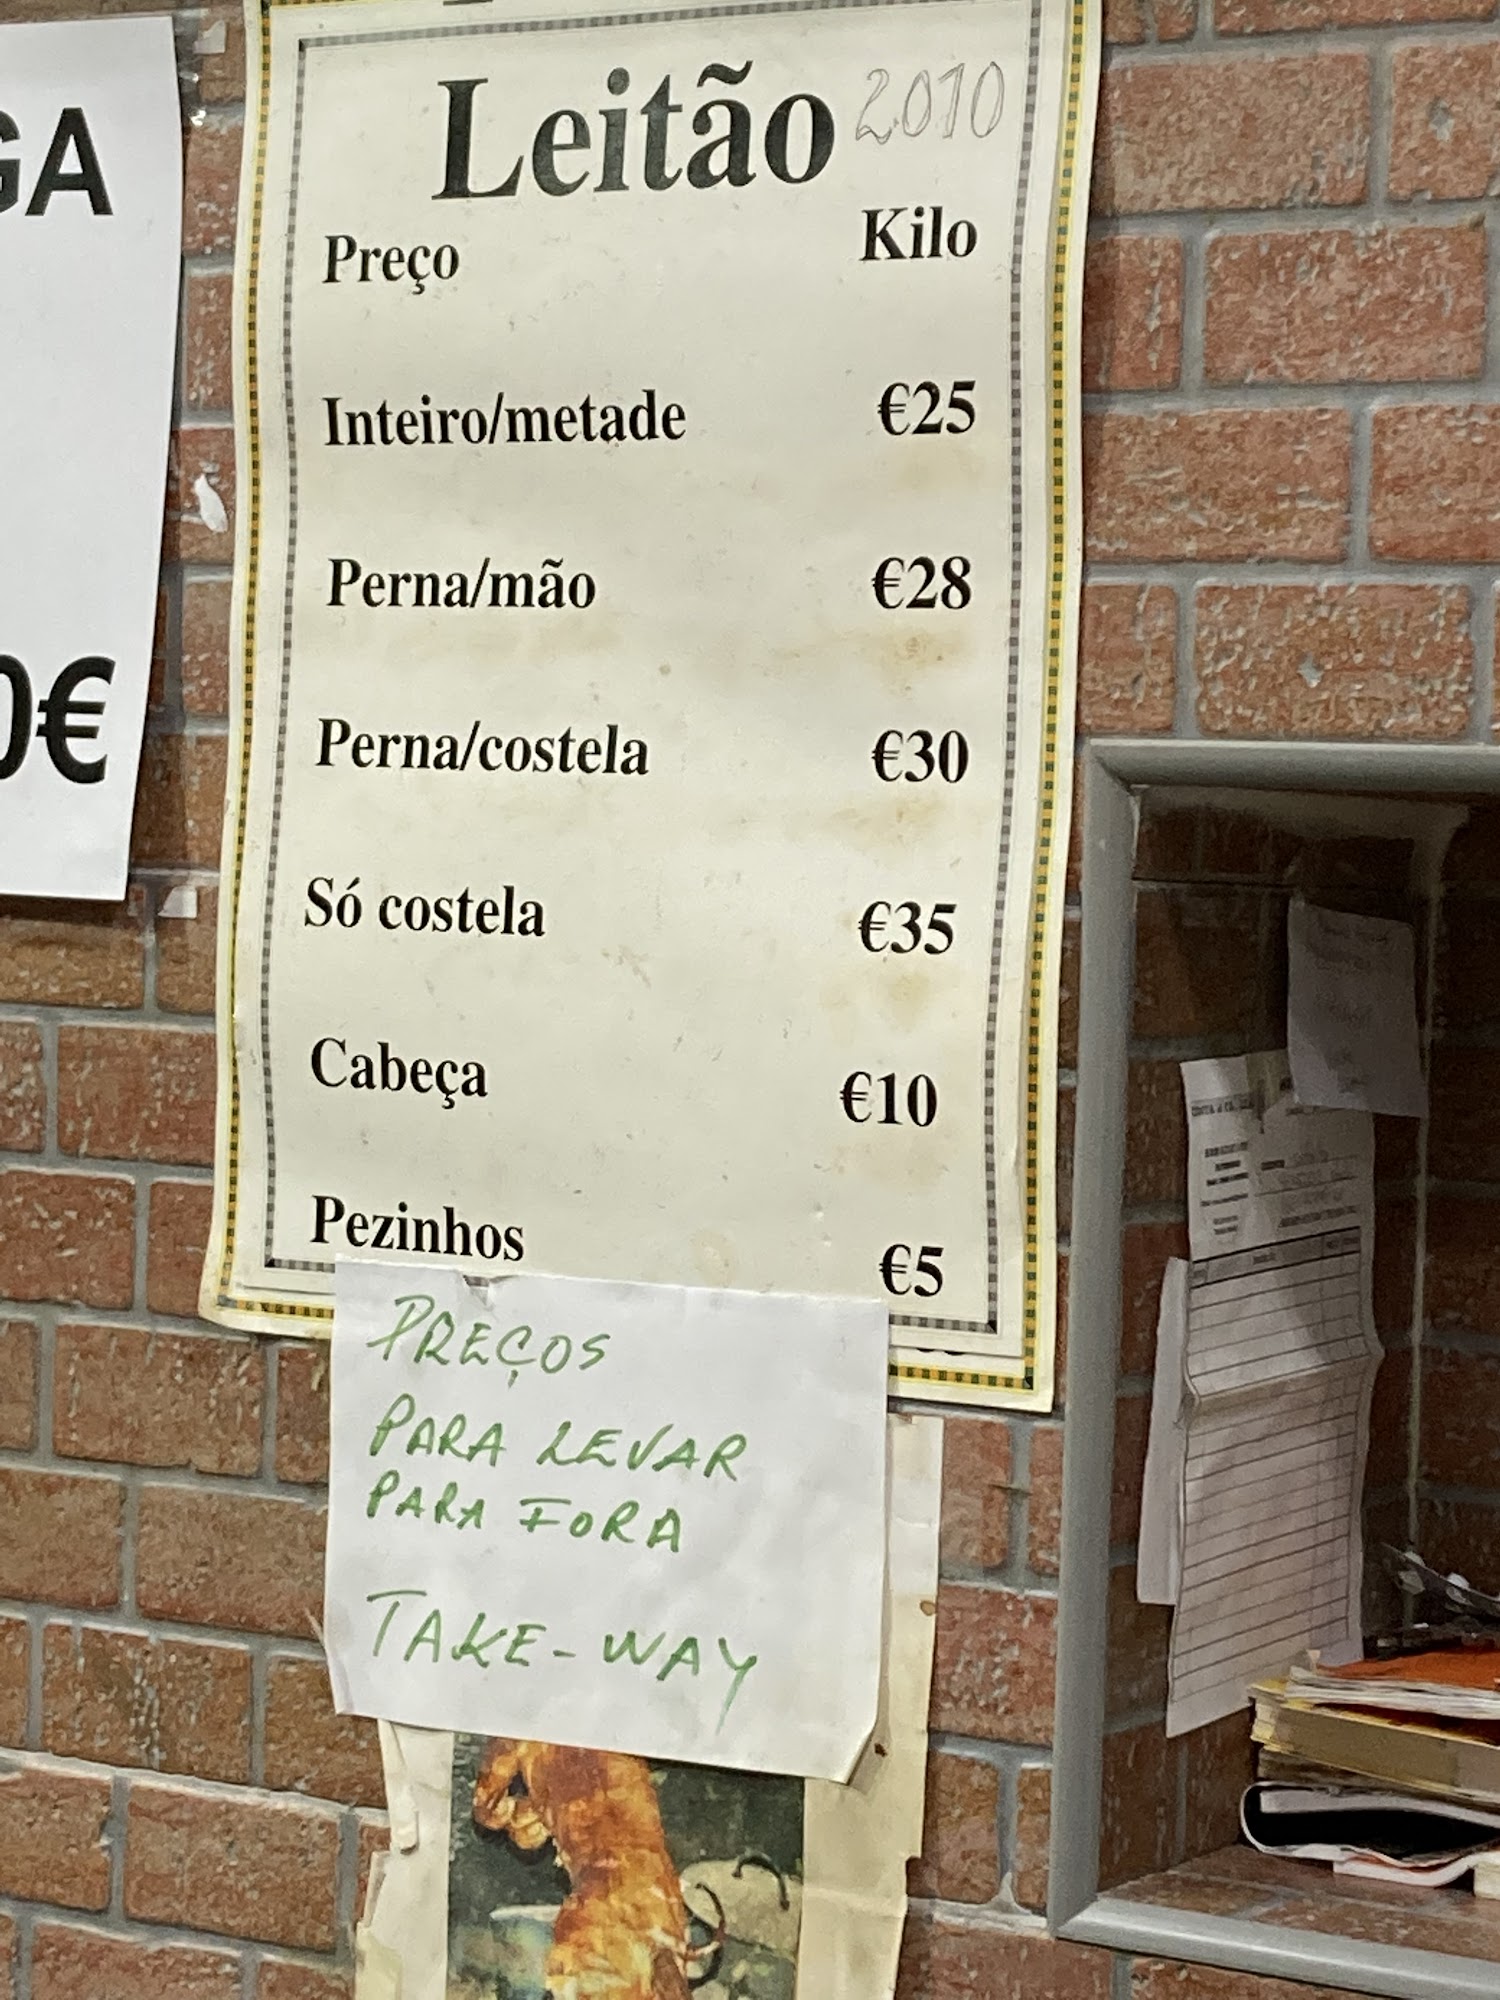 GA
0€
Leitão 2010
Preço Kilo
Inteiro/metade €25
Perna/mão €28
Perna/costela €30
Só costela €35
Cabeça €10
Pezinhos €5
PREÇOS
PARA LEVAR
PARA FORA
TAKE-WAY